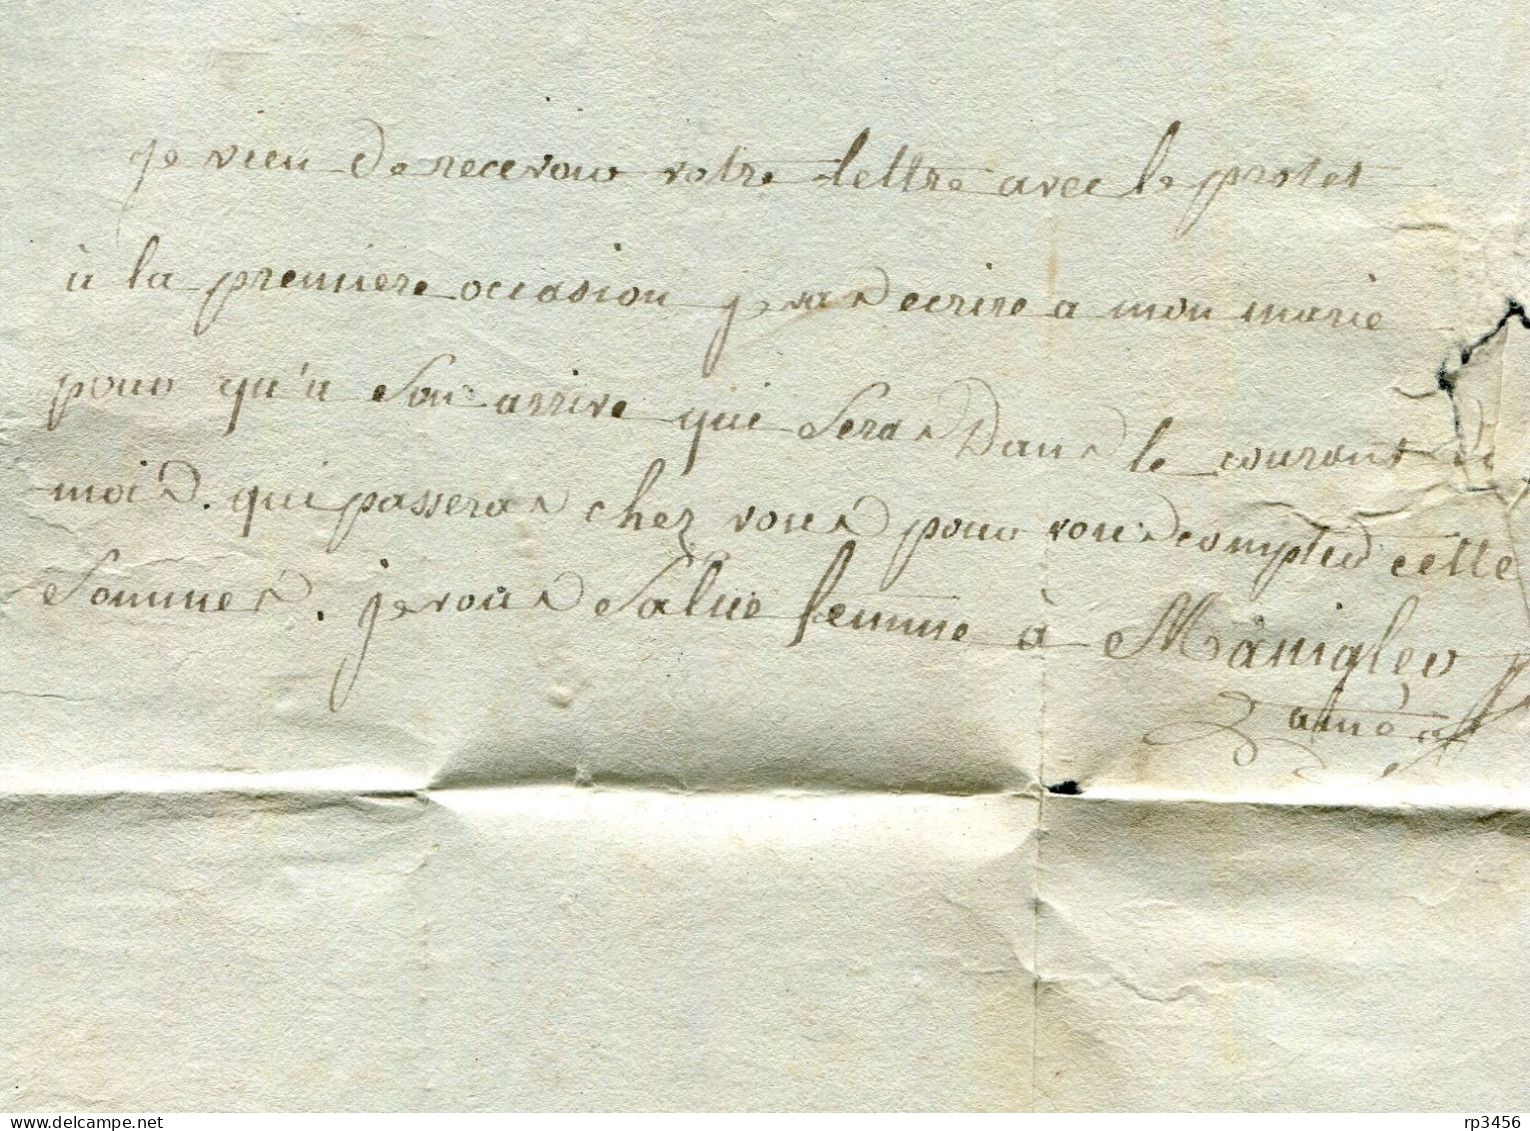 je vien de recevoir votre lettre avec le protet
a la premiere occasion je vas ecrire a mon marie
pour qu'a son arrive qui seras dans le courant
mois. qui passeras chez vous pour vous compter cette
Sommes. je vous Salue femme à Mànigleo
ainé
rp3456